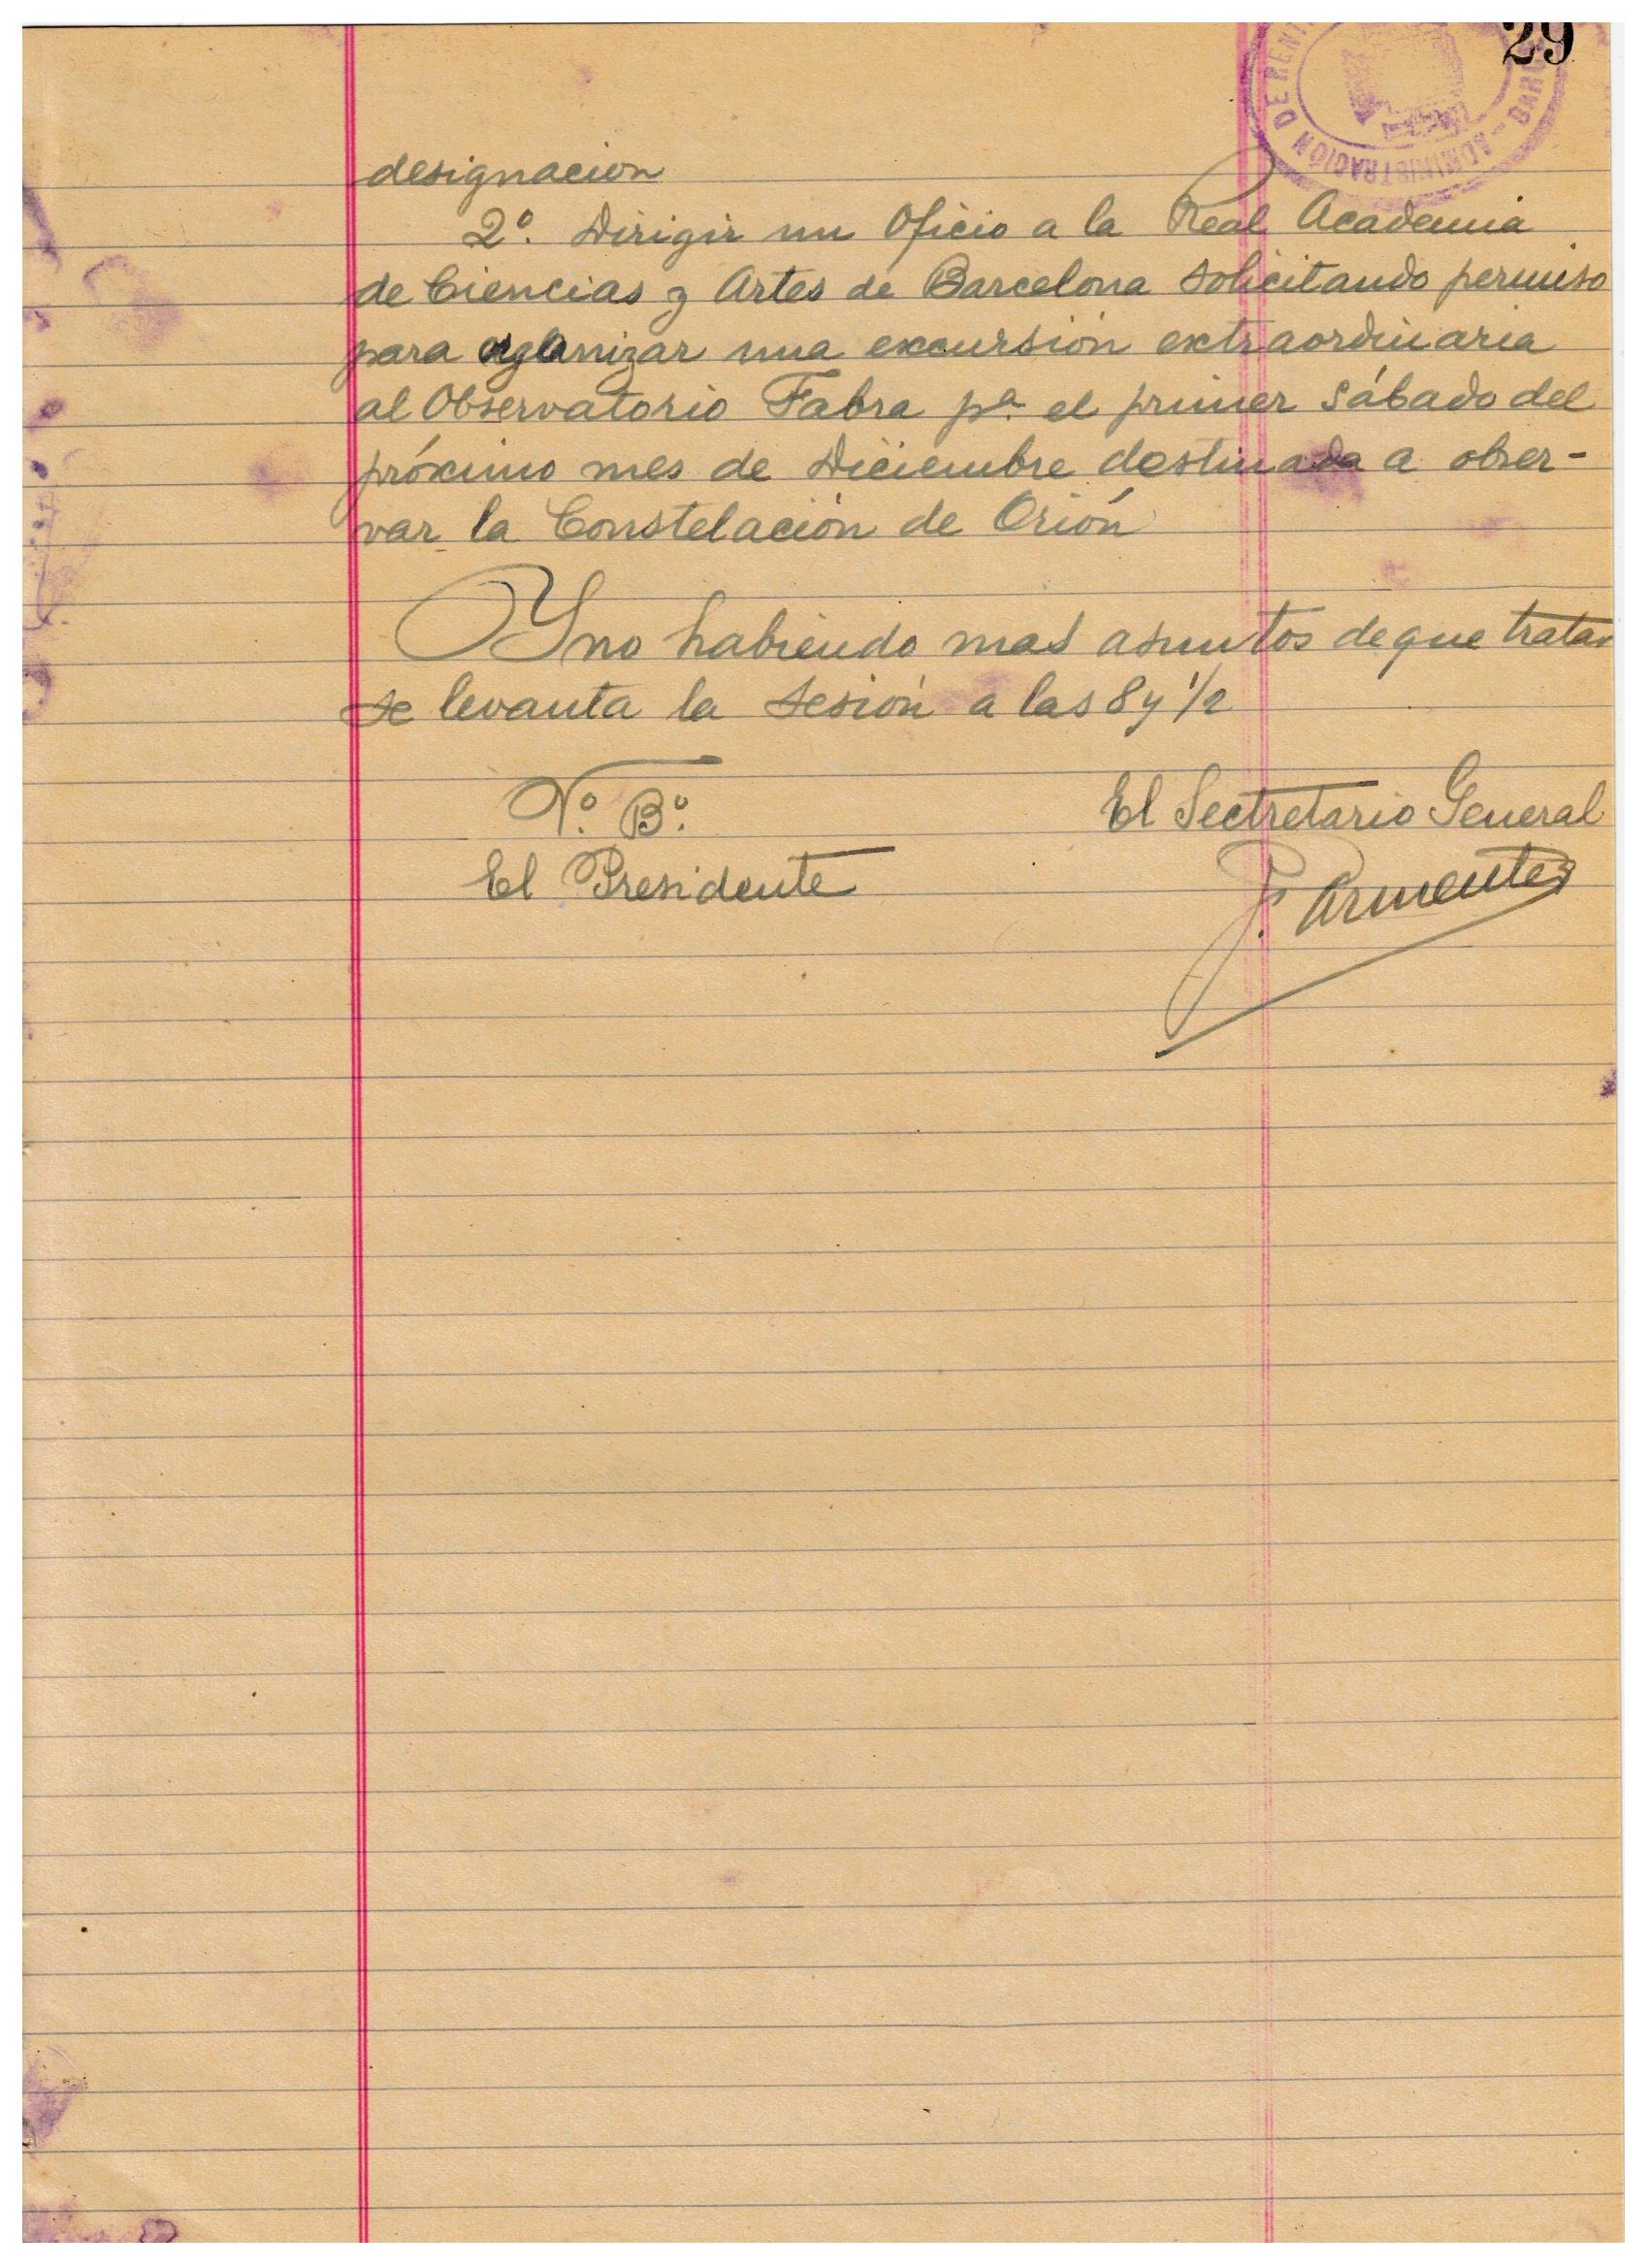 29
ADMINISTRACIÓN DE
designacion
2º. Dirigir un Oficio a la Real Academia
de Ciencias y Artes de Barcelona solicitando permiso
para organizar una excursión extraordinaria
al Observatorio Fabra pª el primer sábado del
próximo mes de Diciembre destinada a obser-
var la Constelación de Orión
Y no habiendo mas asuntos de que tratar
se levanta la sesión a las 8 y 1/2
Vº. Bº. El Sectretario General
El Presidente P. Armenter